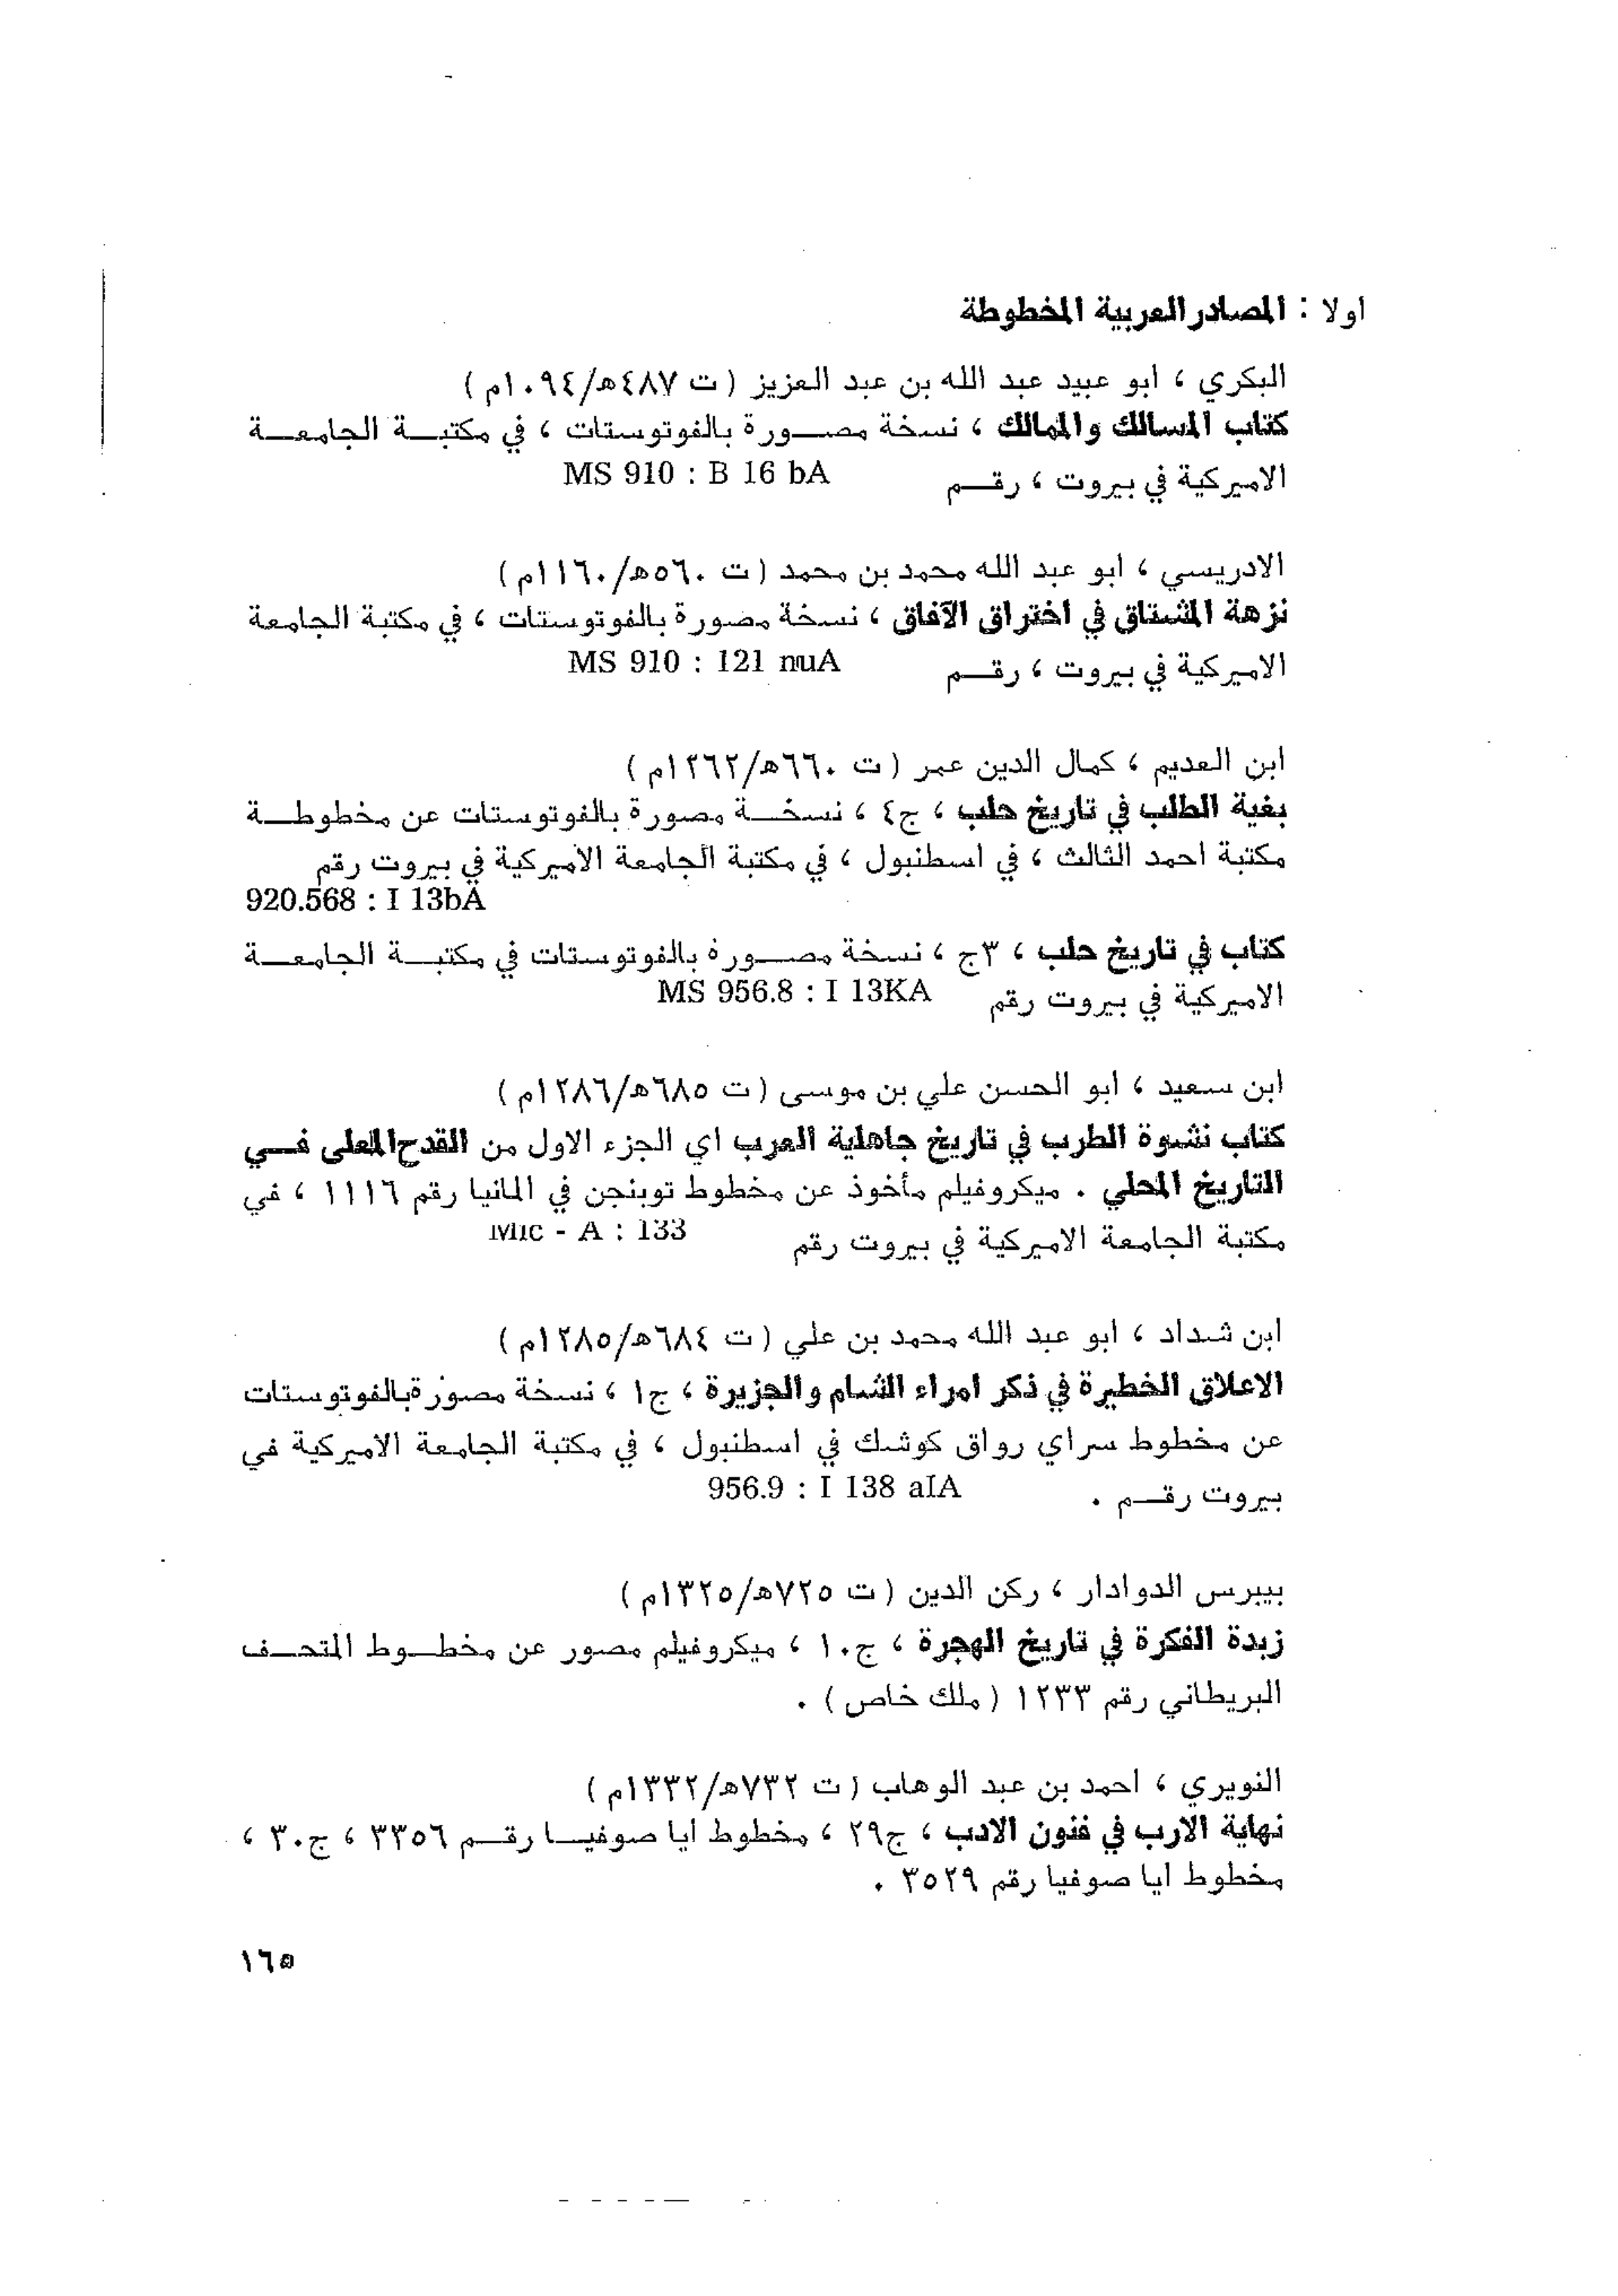 اولا : المصادر العربية المخطوطة
البكري ، ابو عبيد عبد الله بن عبد العزيز ( ت ٤٨٧ه/١٠٩٤م )
كتاب المسالك والممالك ، نسخة مصورة بالفوتوستات ، في مكتبة الجامعة
الاميركية في بيروت ، رقم MS 910 : B 16 bA
الادريسي ، ابو عبد الله محمد بن محمد ( ت ٥٦٠ه/١١٦٠م )
نزهة المشتاق في اختراق الآفاق ، نسخة مصورة بالفوتوستات ، في مكتبة الجامعة
الاميركية في بيروت ، رقم MS 910 : 121 nuA
ابن العديم ، كمال الدين عمر ( ت ٦٦٠ه/١٢٦٢م )
بغية الطلب في تاريخ حلب ، ج٤ ، نسخة مصورة بالفوتوستات عن مخطوطة
مكتبة احمد الثالث ، في اسطنبول ، في مكتبة الجامعة الاميركية في بيروت رقم
920.568 : I 13bA
كتاب في تاريخ حلب ، ٣ج ، نسخة مصورة بالفوتوستات في مكتبة الجامعة
الاميركية في بيروت رقم MS 956.8 : I 13KA
ابن سعيد ، ابو الحسن علي بن موسى ( ت ٦٨٥ه/١٢٨٦م )
كتاب نشوة الطرب في تاريخ جاهلية العرب اي الجزء الاول من القدح المعلى في
التاريخ المحلي . ميكروفيلم مأخوذ عن مخطوط توبنجن في المانيا رقم ١١١٦ ، في
مكتبة الجامعة الاميركية في بيروت رقم Mic - A : 133
ابن شداد ، ابو عبد الله محمد بن علي ( ت ٦٨٤ه/١٢٨٥م )
الاعلاق الخطيرة في ذكر امراء الشام والجزيرة ، ج١ ، نسخة مصورة بالفوتوستات
عن مخطوط سراي رواق كوشك في اسطنبول ، في مكتبة الجامعة الاميركية في
بيروت رقم . 956.9 : I 138 aIA
بيبرس الدوادار ، ركن الدين ( ت ٧٢٥ه/١٣٢٥م )
زبدة الفكرة في تاريخ الهجرة ، ج١٠ ، ميكروفيلم مصور عن مخطوط المتحف
البريطاني رقم ١٢٣٣ ( ملك خاص ) .
النويري ، احمد بن عبد الوهاب ( ت ٧٣٢ه/١٣٣٢م )
نهاية الارب في فنون الادب ، ج٢٩ ، مخطوط ايا صوفيا رقم ٣٣٥٦ ، ج٣٠ ،
مخطوط ايا صوفيا رقم ٣٥٢٩ .
١٦٥